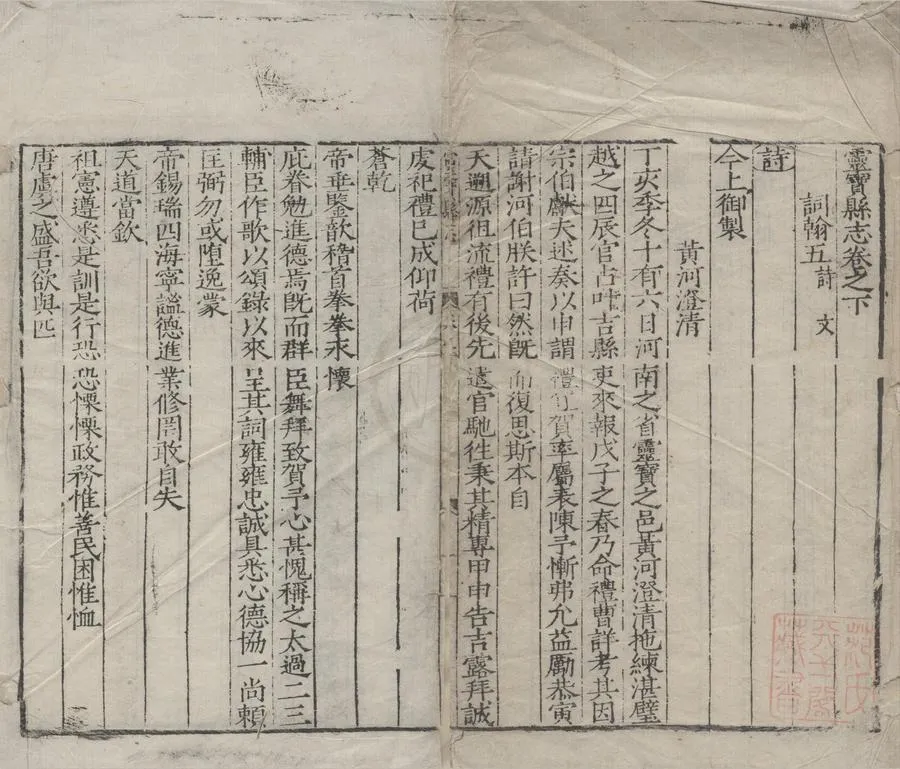 靈寶縣志卷之下
詞翰五 詩 文
詩
今上御製
黃河澄清
丁亥季冬十有六日河南之省靈寶之邑黃河澄清拖練湛璧
越之四辰官占叶吉縣吏來報戊子之春乃命禮曹詳考其因
宗伯獻夫述奏以申謂禮宜賀率屬表陳予慚弗允益勵恭寅
請謝河伯朕許曰然旣而復思斯本自
天遡源祖流禮有後先遣官馳徃秉其精專甲申告吉露拜誠
虔祀禮已成仰荷
蒼乾
帝垂鑒歆稽首拳拳永懷
庇眷勉進德焉旣而群臣舞拜致賀予心甚愧稱之太過二三
輔臣作歌以頌錄以來呈其詞雍雍忠誠具悉心德協一尚頼
匡弼勿或墮逸蒙
帝錫瑞四海寧謐德進業修罔敢自失
天道當欽
祖憲遵悉是訓是行恐恐慄慄政務惟善民困惟恤
唐虞之盛吾欲與匹